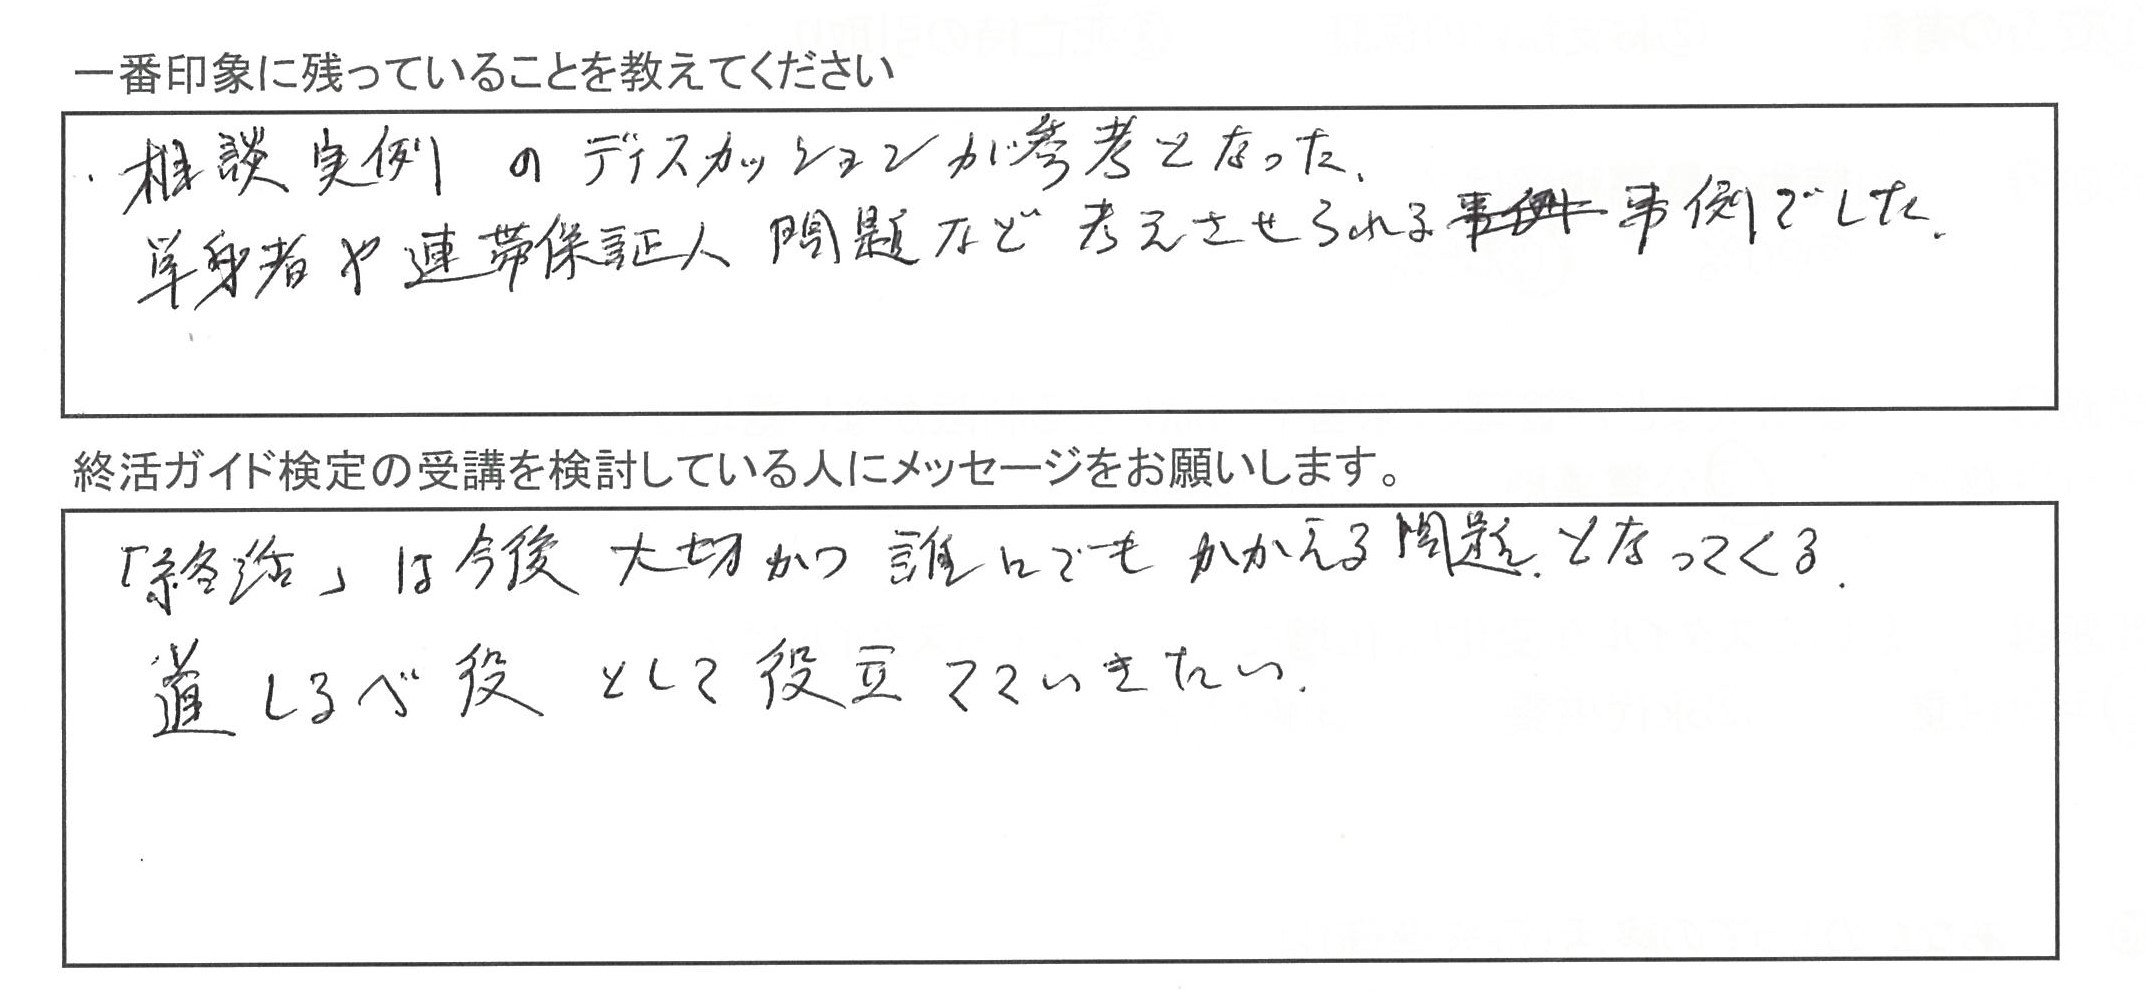 一番印象に残っていることを教えてください
・相談実例のディスカッションが参考となった.
単身者や連帯保証人問題など考えさせられる事例でした.
終活ガイド検定の受講を検討している人にメッセージをお願いします。
「終活」は今後大切かつ誰にでもかかえる問題.となってくる.
道しるべ役として役立てていきたい.